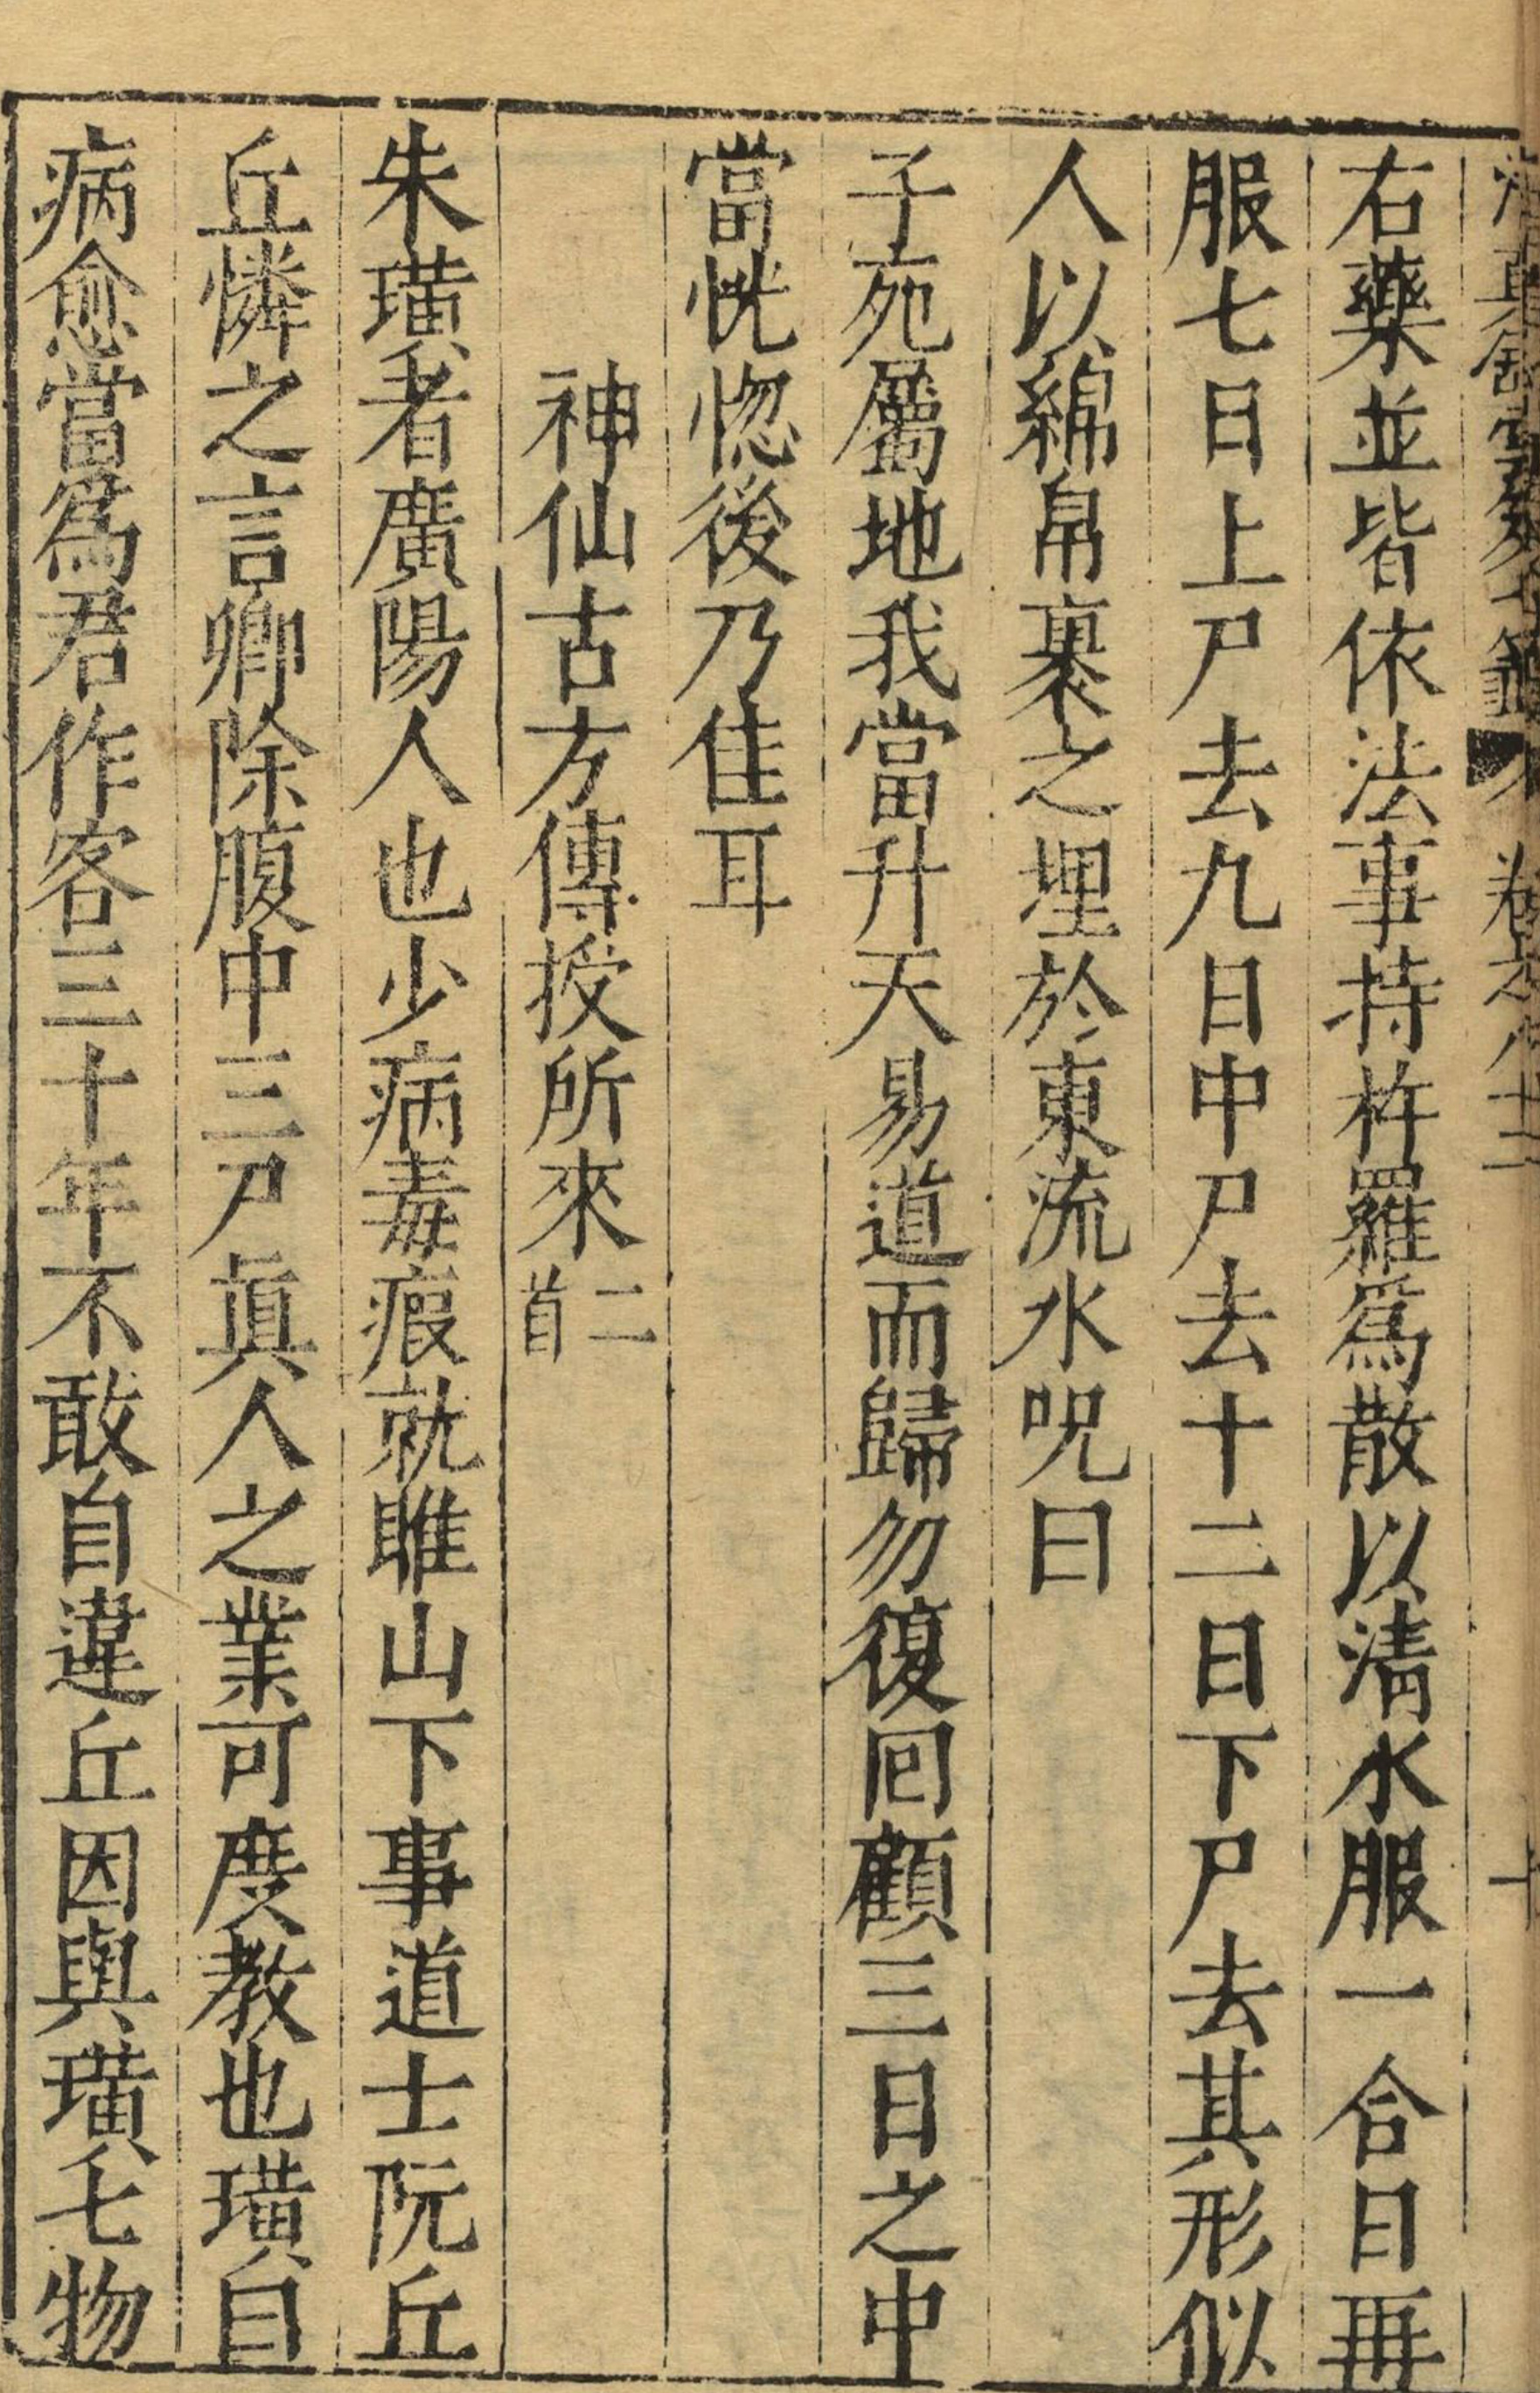 卷之八十二 十
右藥並皆依法事持杵羅爲散以淸水服一合日再
服七日上尸去九日中尸去十二日下尸去其形似
人以綿帛裹之埋於東流水呪曰
子宛屬地我當升天易道而歸勿復回顧三日之中
當恍惚後乃佳耳
神仙古方傳授所來二首
朱璜者廣陽人也少病毒瘕就睢山下事道士阮丘
丘憐之言卿除腹中三尸眞人之業可度教也璜曰
病愈當爲君作客三十年不敢自違丘因與璜七物